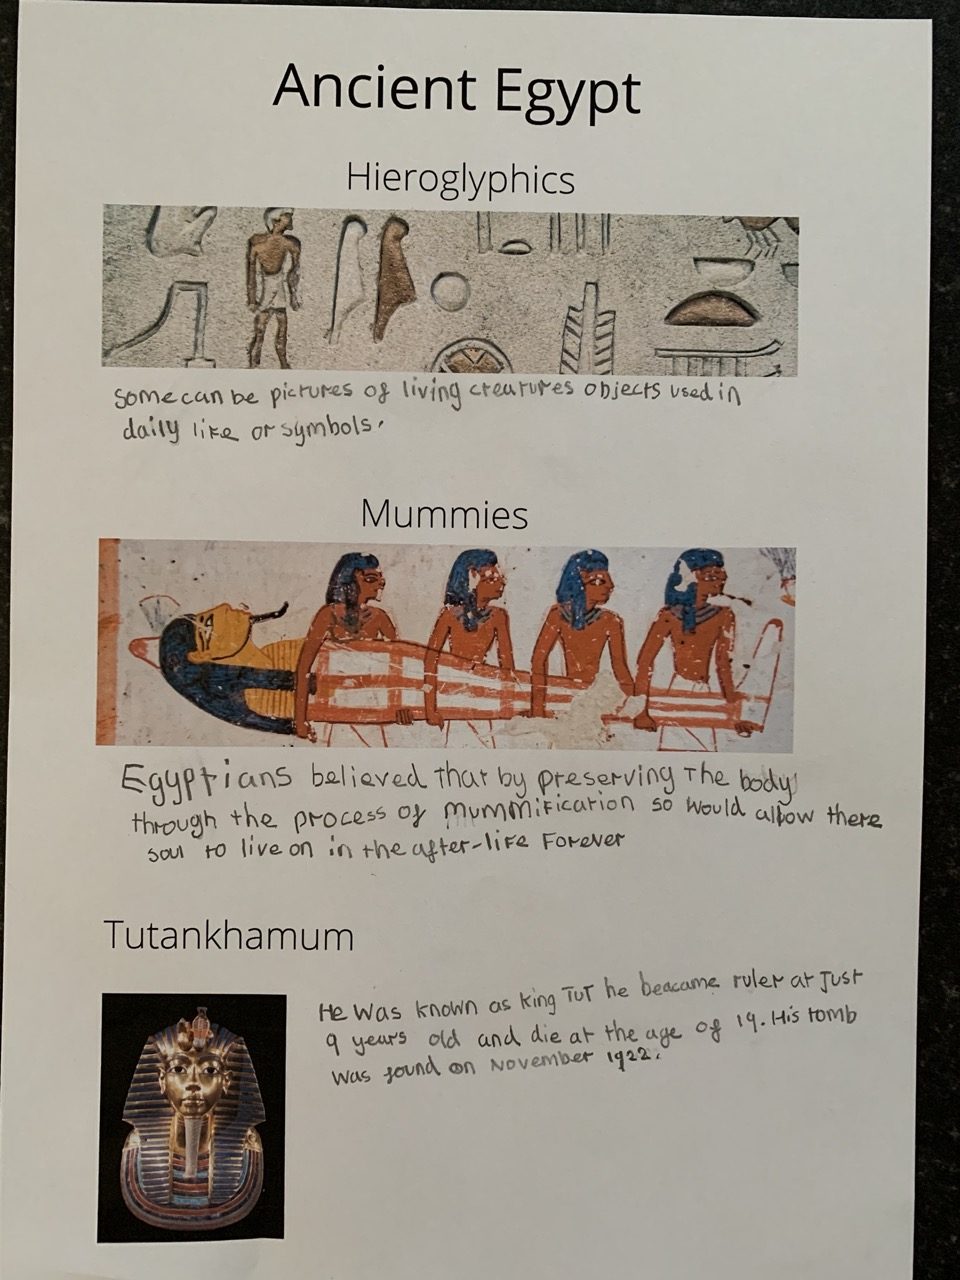 Ancient Egypt
Hieroglyphics
Some can be pictures of living creatures objects used in
daily like or symbols.
Mummies
Egyptians believed that by preserving the body
through the process of mummification so would allow there
soul to live on in the after-life Forever
Tutankhamum
He was known as king TuT he beacame ruler at Just
9 years old and die at the age of 19. His tomb
was found on November 1922.